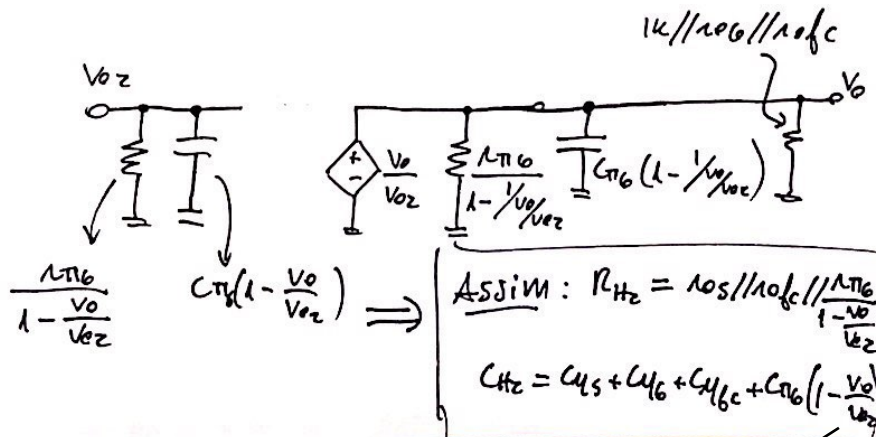 1K//ro6//rofc
Vo2
Vo
+
-
Vo/Vo2
rπ6/(1-1/Vo/Vo2)
Cπ6(1-1/Vo/Vo2)
rπ6/(1-Vo/Vo2)
Cπ6(1-Vo/Vo2) ⇒
Assim: RH2 = ro5//rofc//rπ6/(1-Vo/Vo2)
CH2 = Cμ5 + Cμ6 + Cμ6c + Cπ6(1-Vo/Vo2)